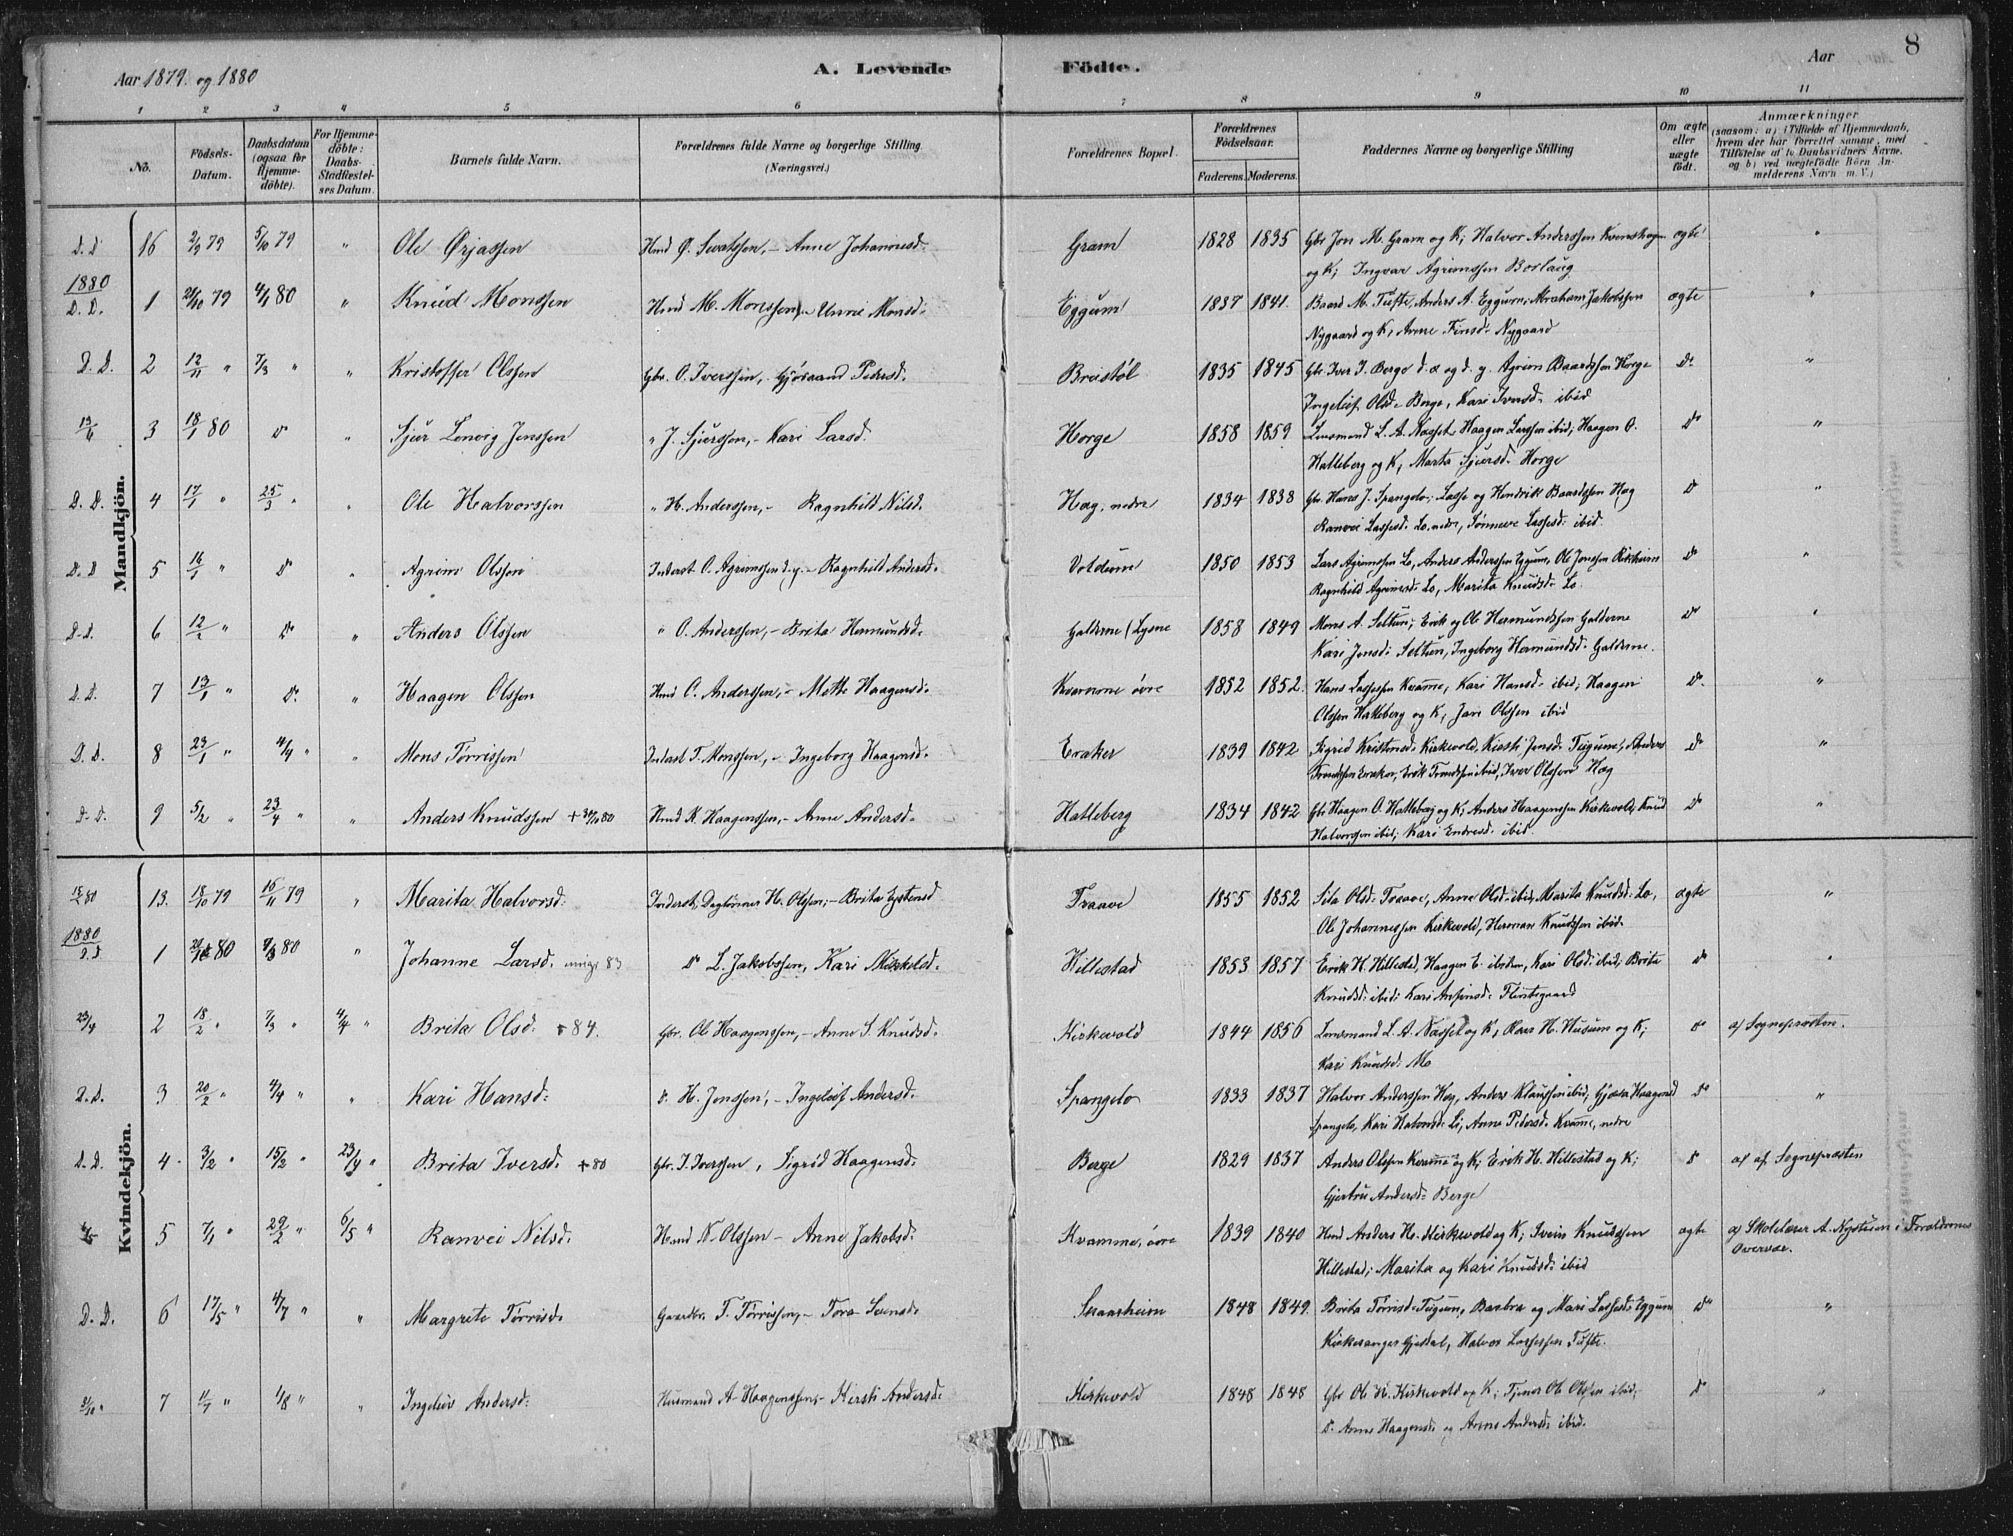 Aar 1879. og 1880
A. Levende Födte.
Aar
8
1 2 3 4 5 6 7 8 9 10 11
No.
Födsels-Datum.
Daabsdatum (ogsaa for Hjemme-döbte).
For Hjemme-döbte: Daabs-Stadfæstel-ses Datum.
Barnets fulde Navn.
Forældrenes fulde Navne og borgerlige Stilling (Næringsvei.)
Forældrenes Bopæl.
Forældrenes Födselsaar.
Faderens. Moderens.
Faddernes Navne og borgerlige Stilling
Om ægte eller uægte födt.
Anmærkninger
(saasom: a) i Tilfælde af Hjemmedaab, hvem der har forrettet samme, med Tilföielse af to Daabsvidners Navne, og b) ved uægtefödte Börn An-melderens Navn m. V.)
Mandkjön.
D. D 16 2/9 79 5/10 79 " Ole Ørjassen Hmd Ø. Sivatssen, - Anne Johannesd. Gram 1828 1835 Gbr Jon M. Gram og K; Halvor Anderssen ægte "
og K; Ingvar Agrimssen Borlaug
1880
D. D. 1 79 4/1 80 " Knud Monssen Hmd M. Monssen, - Unni Monsd: Eggum 1837 1841. Baard M. Tufte, Anders A. Eggum, Abraham Jakobssen ægte "
Nygaard og K, Anne Finsd. Nygaard
D. D. 2 12/11 " 7/3 " " Kristoffer Olssen Gbr. O. Iverssen, - Gjøraand Pedersd. Breistøl 1835 1845 Gbr Iver I. Berge d. æ og d. y. Agrim Baardssen Horge do "
Ingeleif Olsd. Berge, Kari Iversd. ibid
13/6 3 18/1 80 do " Sjur Lovig Jenssen " J. Sjurssen, - Kari Larsd. Horge 1858 1859 Lensmand L. A. Næsset, Haagen Larssen ibid; Haagen O. do "
Hatleberg og K, Marta Sjursd. Horge
D. D. 4 17/1 " 25/3 " " Ole Halvorssen " H. Anderssen, - Ragnhild Nilsd. Hæg, nedre 1834 1838 Gbr. Hans J. Spangelo; Lasse og Hendrik Baardssen Hæg do "
Ranvei Lassesd. Lo, nedre, Sønneve Lassesd. ibid.
D. D 5 16/1 " do " Agrim Olssen Inderst O. Agrimssen d. y. - Ragnhild Andersd. Voldum 1850 1853 Lars Agrimssen Lo, Anders Anderssen Eggum, Ole Jonssen do "
Ragnhild Agrimsd. Lo, Marita Knudsd. Lo.
D. D. 6 12/2 " do " Anders Olssen " O. Anderssen, - Brita Hermundsd. Galderne (Lysne 1858 1849 Mons A. Seltun; Erik og Ole Hermundssen Galderne do "
Kari Jensd: Seltun, Ingeborg Hermundsd. Galderne.
D. D. 7 13/1 " do " Haagen Olssen Hmd O. Anderssen, - Mette Haagensd. Kvamme øvre 1852 1852. Hans Lassesen Kvamme, Kari Hansd. ibid; Haagen do "
Olssen Hatleberg og K, Jan Olssen ibid
D. D. 8 23/1 " 4/4 " " Mons Tørrissen Inderst T. Monssen, - Ingeborg Haagensd. Eraker 1839 1842 Sigrid Kristensd. Kirkevold, Kirsti Jensd. Tugum, Anders do "
Trondssen Eraker, Erik Trondssen ibid, Iver Olssen Hæg
D. D. 9 5/2 " 23/4 " " Anders Knudssen + 80 Hmd K. Haagenssen, - Anne Andersd. Hatleberg 1834 1842 Gbr Haagen O. Hatleberg og K; Anders Haagenssen Kirkevold; Knud do "
Halvorssen ibid; Kari Endresd. ibid
Kvindekjön.
80 13. 18/10 79 16/11 79 " Marita Halvorsd: Inderst, Daglønner H. Olssen, - Brita Eystensd Traave 1855 1852 Sila Olsd. Traave, Anne Olsd. ibid, Marita Knudsd. Lo, ægte "
Ole Johannessen Kirkevold, Herman Knudssen ibid.
1880
D. D 1 80 7/3 80 " Johanne Larsd. emigr 83 do L. Jakobssen, Kari Mikkelsd. Hillestad 1853 1857 Erik H. Hillestad, Haagen E. ibidem, Kari Olsd: ibid; Brita do "
Knudsd: ibid; Kari Anfinsd. Flintegaard
23/4 2 18/2 " 7/3 " 4/4 " Brita Olsd. + 84. Gbr. Ole Haagenssen, - Anne S. Knudsd. Kirkevold 1844 1856 Lensmand L. A. Næsset og K, Hans H. Husum og K; do a/ Sognepresten.
Kari Knudsd. Mo
D. D. 3 20/2 " 4/4 " " Kari Hansd: do H. Jenssen, - Ingeleif Andersd. Spangelo 1833 1837 Halvor Anderssen Hæg, Anders Klaussen ibid, Gjertru Haagensd do "
Spangelo, Kari Halvorsd. Lo, Anne Pedersd. Kvamme, nedre
D. D. 4 3/2 " 15/2 " 23/4 " Brita Iversd. + 80 Gbr. I. Iverssen, Sigrid Haagensd. Berge 1829 1837 Anders Olssen Kvamme og K; Erik H. Hillestad og K; do a/ af Sognepresten
Gjertru Andersd. Berge
6/5 5 7/1 " 29/2 " 6/5 " Ranvei Nilsd. Hmd N. Olssen - Anne Jakobsd. Kvamme, øvre 1839 1840 Hmd Anders H. Kirkevold og K; Svein Knudssen ægte a/ Skolelærer A. Nystuen i Forældrenes
Hillestad; Marita og Kari Knudsd: ibid Overvær.
D. D. 6 17/5 " 4/7 " " Margrete Tørrisd. Gaardbr. T. Tørrissen, - Tora Svensd. Skaarheim 1848 1849. Brita Tørrisd. Tugum, Barbra og Mari Lassesd: Eggum do "
Kirkesanger Gjesdal, Halvor Lassessen Tufte.
7 " 1/8 " " Ingeleiv Andersd: Husmand A. Haagenssen, - Kirsti Andersd. Kirkevold 1848 1848 Gbr Ole H. Kirkevold og K; Tjener Ole Olssen ibid. do "
D. Anne Haagensd. og Anne Andersd: ibid.